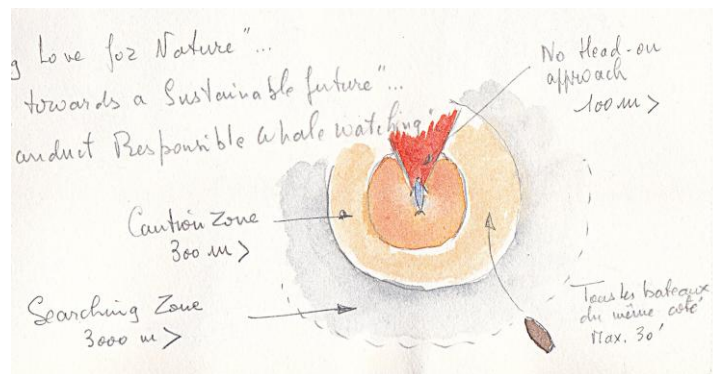 g Love for Nature"...
towards a Sustainable future"...
onduct Responsible whale watching"
No Head-on
approach
100 m >
Caution Zone
300 m >
Searching Zone
3000 m >
Tous les bateaux
du même coté
Max. 30'